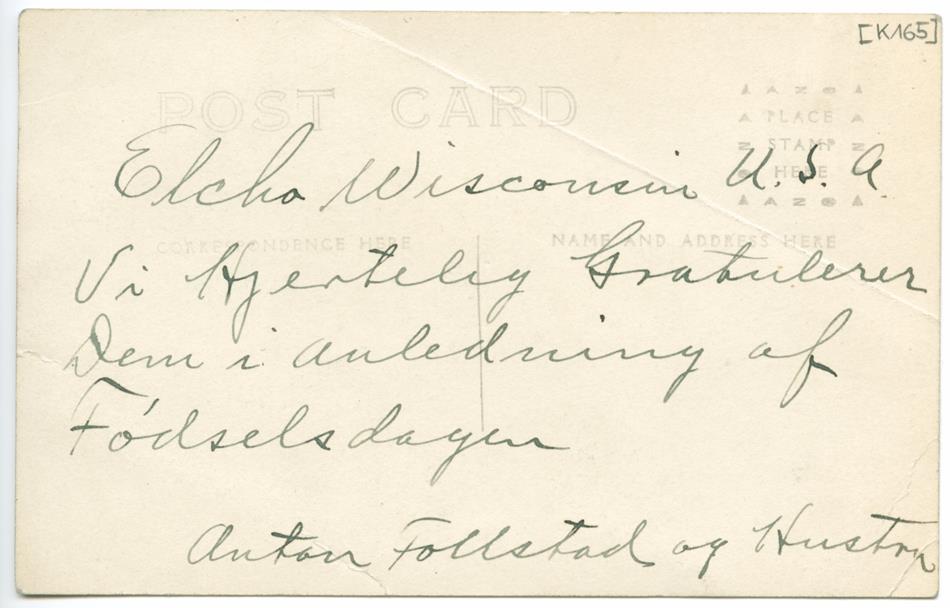 [K165]
POST CARD
AZO
PLACE
STAMP
HERE
AZO
Elcho Wisconsin U.S.A
CORRESPONDENCE HERE
NAME AND ADDRESS HERE
Vi Hjertelig Gratulerer
Dem i anledning af
Fódselsdagen
Anton Follstad og Hustru